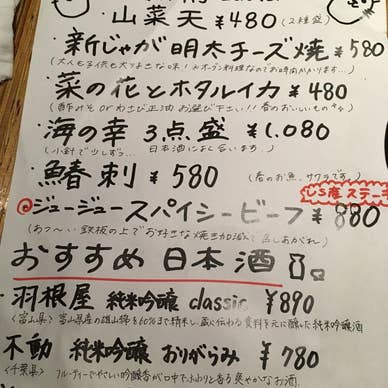 山菜天 ¥480 (2種盛)
新じゃが明太チーズ焼 ¥580
(大人も子供も大好きな味!オーブン料理なのでお時間かかります...)
菜の花とホタルイカ ¥480
(酢みそ or わさび正油 お選び下さい!! 春のおいしいもの)
海の幸 3点盛 ¥1,080
(小鉢で少しずつ... 日本酒によく合います。)
鰆刺 ¥580 (春のお魚、サワラです。)
ジュージュースパイシービーフ ¥880
(あつ〜い鉄板の上でお好きな焼き加減で召しあがれ)
おすすめ日本酒
羽根屋 純米吟醸 classic ¥890
<富山県> 富山県産の雄山錦を60%まで精米し、蔵に伝わる資料を元に醸した純米吟醸酒
不動 純米吟醸 おりがらみ ¥780
<千葉県> フルーティーでやさしい吟醸香が口中でふわりと香る爽やかなお酒。